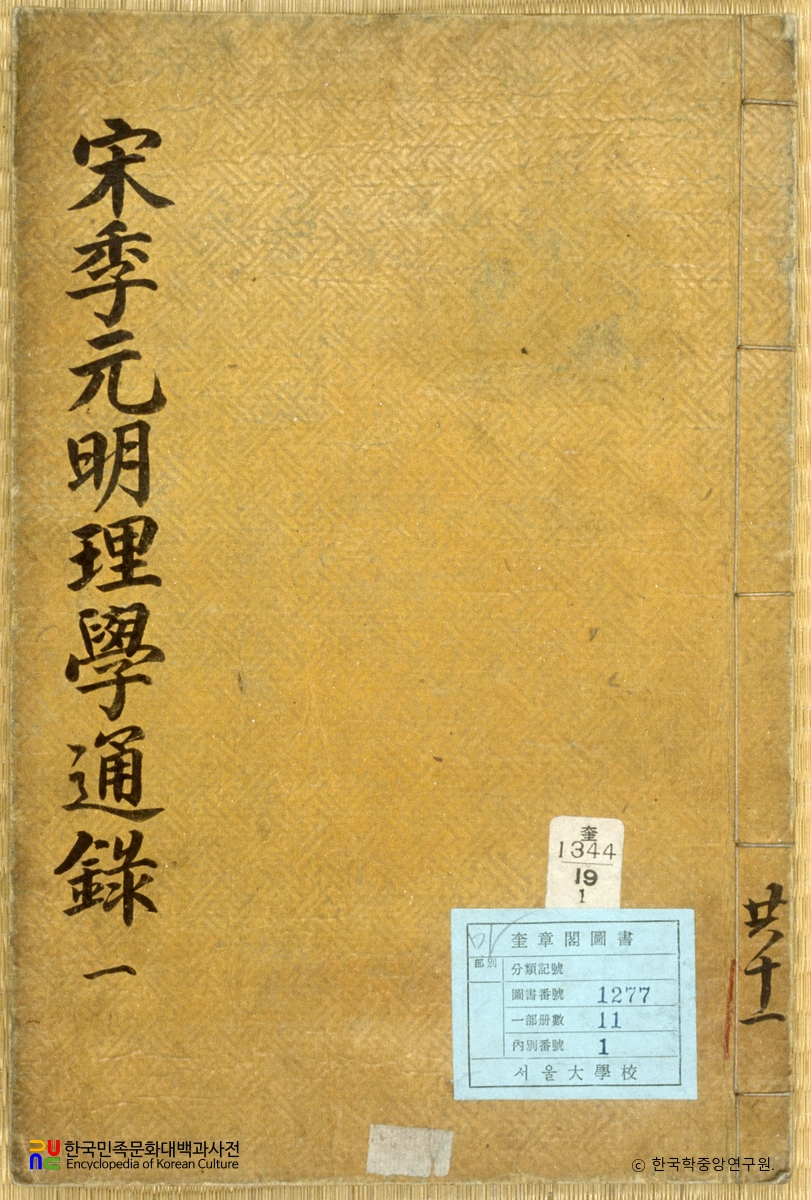 宋季元明理學通錄 一
共十一
奎
1344
19
1
奎章閣圖書
部別
分類記號
圖書番號 1277
一部册數 11
內別番號 1
서울大學校
한국민족문화대백과사전
Encyclopedia of Korean Culture
© 한국학중앙연구원.